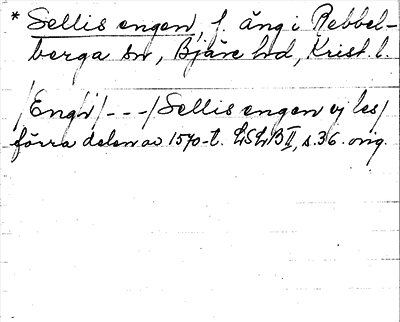 * Sellis engen, f. äng i Rebbel-
berga sn, Bjäre hd, Krist. l.
/Eng/ /---/ Sellis engen ej les/
förra delen av 1570-t. LSLB II, s. 36. orig.